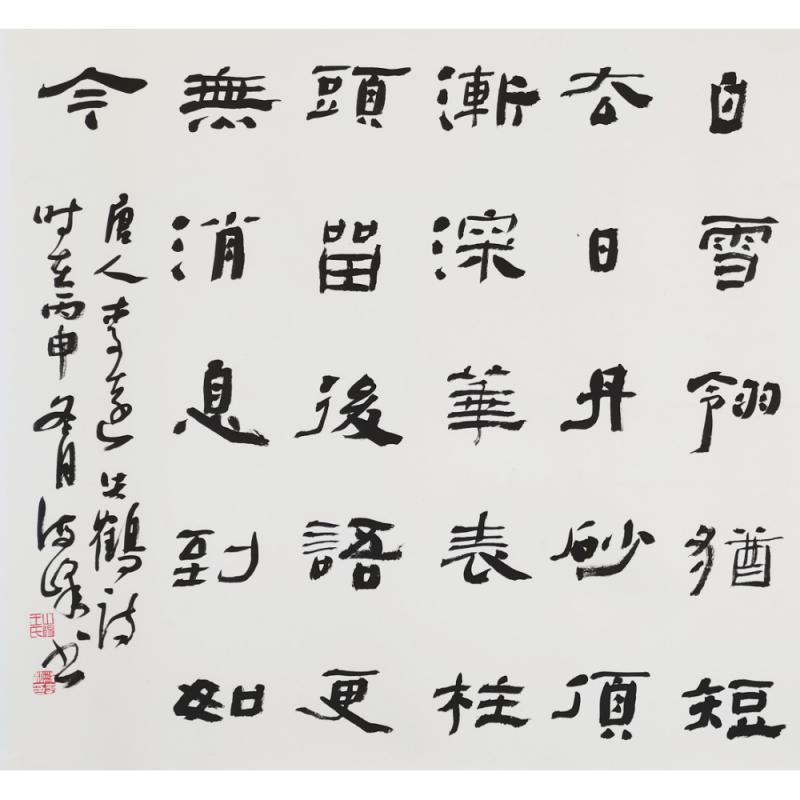 白雪翎猶短
去日丹砂頂
漸深華表柱
頭留後語更
無消息到如
今
唐人李遠失鶴诗
时在丙申冬月峰书